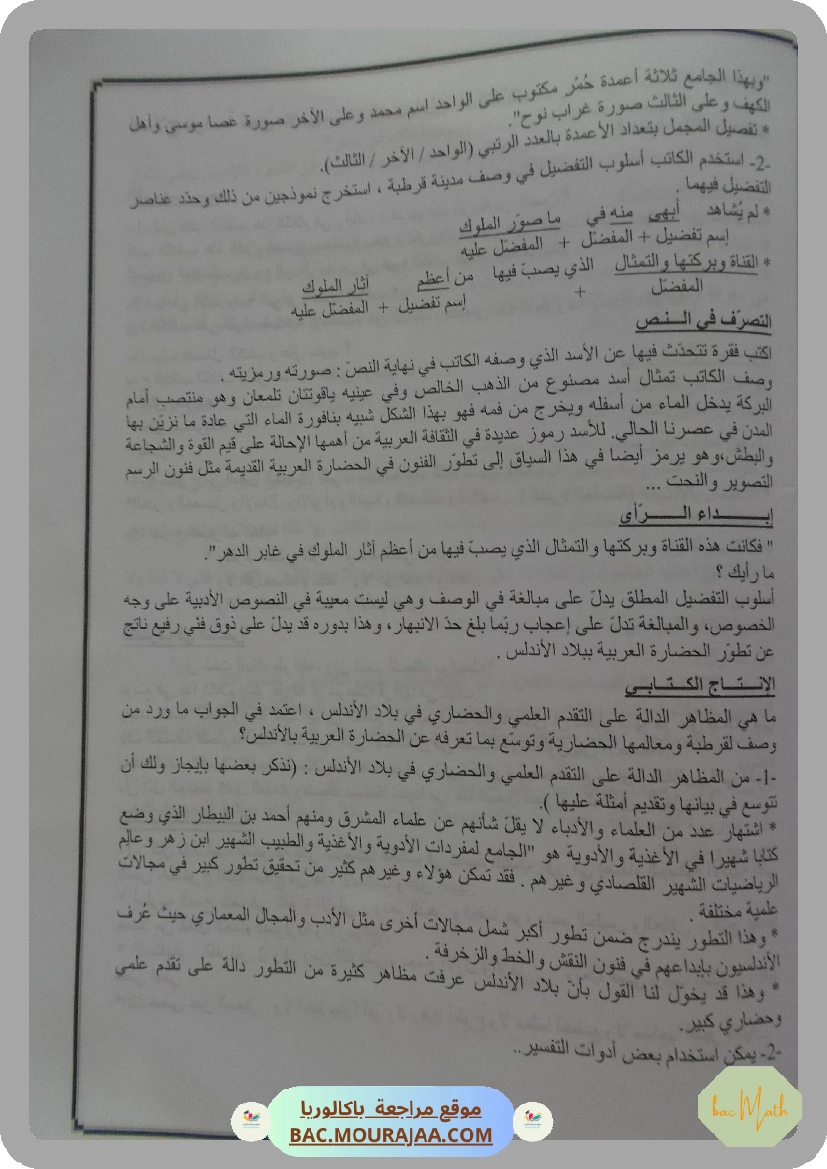 "وبهذا الجامع ثلاثة أعمدة حُمْر مكتوب على الواحد اسم محمد وعلى الآخر صورة عصا موسى وأهل
الكهف وعلى الثالث صورة غراب نوح".
* تفصيل المجمل بتعداد الأعمدة بالعدد الرتبي (الواحد / الآخر / الثالث).
-2- استخدم الكاتب أسلوب التفضيل في وصف مدينة قرطبة ، استخرج نموذجين من ذلك وحدّد عناصر
التفضيل فيهما .
* لم يُشاهد أبهى منه في ما صوّر الملوك
إسم تفضيل + المفضّل + المفضّل عليه
* القناة وبركتها والتمثال الذي يصبّ فيها من أعظم آثار الملوك
المفضّل + إسم تفضيل + المفضّل عليه
التصرّف في الـنـص
اكتب فقرة تتحدّث فيها عن الأسد الذي وصفه الكاتب في نهاية النصّ : صورته ورمزيته .
وصف الكاتب تمثال أسد مصنوع من الذهب الخالص وفي عينيه ياقوتتان تلمعان وهو منتصب أمام
البركة يدخل الماء من أسفله ويخرج من فمه فهو بهذا الشكل شبيه بنافورة الماء التي عادة ما نزيّن بها
المدن في عصرنا الحالي. للأسد رموز عديدة في الثقافة العربية من أهمها الإحالة على قيم القوة والشجاعة
والبطش،وهو يرمز أيضا في هذا السياق إلى تطوّر الفنون في الحضارة العربية القديمة مثل فنون الرسم
التصوير والنحت ...
إبـــداء الـــرّأي
" فكانت هذه القناة وبركتها والتمثال الذي يصبّ فيها من أعظم آثار الملوك في غابر الدهر".
ما رأيك ؟
أسلوب التفضيل المطلق يدلّ على مبالغة في الوصف وهي ليست معيبة في النصوص الأدبية على وجه
الخصوص، والمبالغة تدلّ على إعجاب ربّما بلغ حدّ الانبهار، وهذا بدوره قد يدلّ على ذوق فني رفيع ناتج
عن تطوّر الحضارة العربية ببلاد الأندلس .
الإنـتـاج الكـتـابـي
ما هي المظاهر الدالة على التقدم العلمي والحضاري في بلاد الأندلس ، اعتمد في الجواب ما ورد من
وصف لقرطبة ومعالمها الحضارية وتوسّع بما تعرفه عن الحضارة العربية بالأندلس؟
-1- من المظاهر الدالة على التقدم العلمي والحضاري في بلاد الأندلس : (نذكر بعضها بإيجاز ولك أن
تتوسع في بيانها وتقديم أمثلة عليها ).
* اشتهار عدد من العلماء والأدباء لا يقلّ شأنهم عن علماء المشرق ومنهم أحمد بن البيطار الذي وضع
كتابا شهيرا في الأغذية والأدوية هو "الجامع لمفردات الأدوية والأغذية والطبيب الشهير ابن زهر وعالم
الرياضيات الشهير القلصادي وغيرهم . فقد تمكن هؤلاء وغيرهم كثير من تحقيق تطور كبير في مجالات
علمية مختلفة .
* وهذا التطور يندرج ضمن تطور أكبر شمل مجالات أخرى مثل الأدب والمجال المعماري حيث عُرف
الأندلسيون بإبداعهم في فنون النقش والخط والزخرفة .
* وهذا قد يخوّل لنا القول بأنّ بلاد الأندلس عرفت مظاهر كثيرة من التطور دالة على تقدم علمي
وحضاري كبير.
-2- يمكن استخدام بعض أدوات التفسير..
موقع مراجعة باكالوريا
BAC.MOURAJAA.COM
bac Math